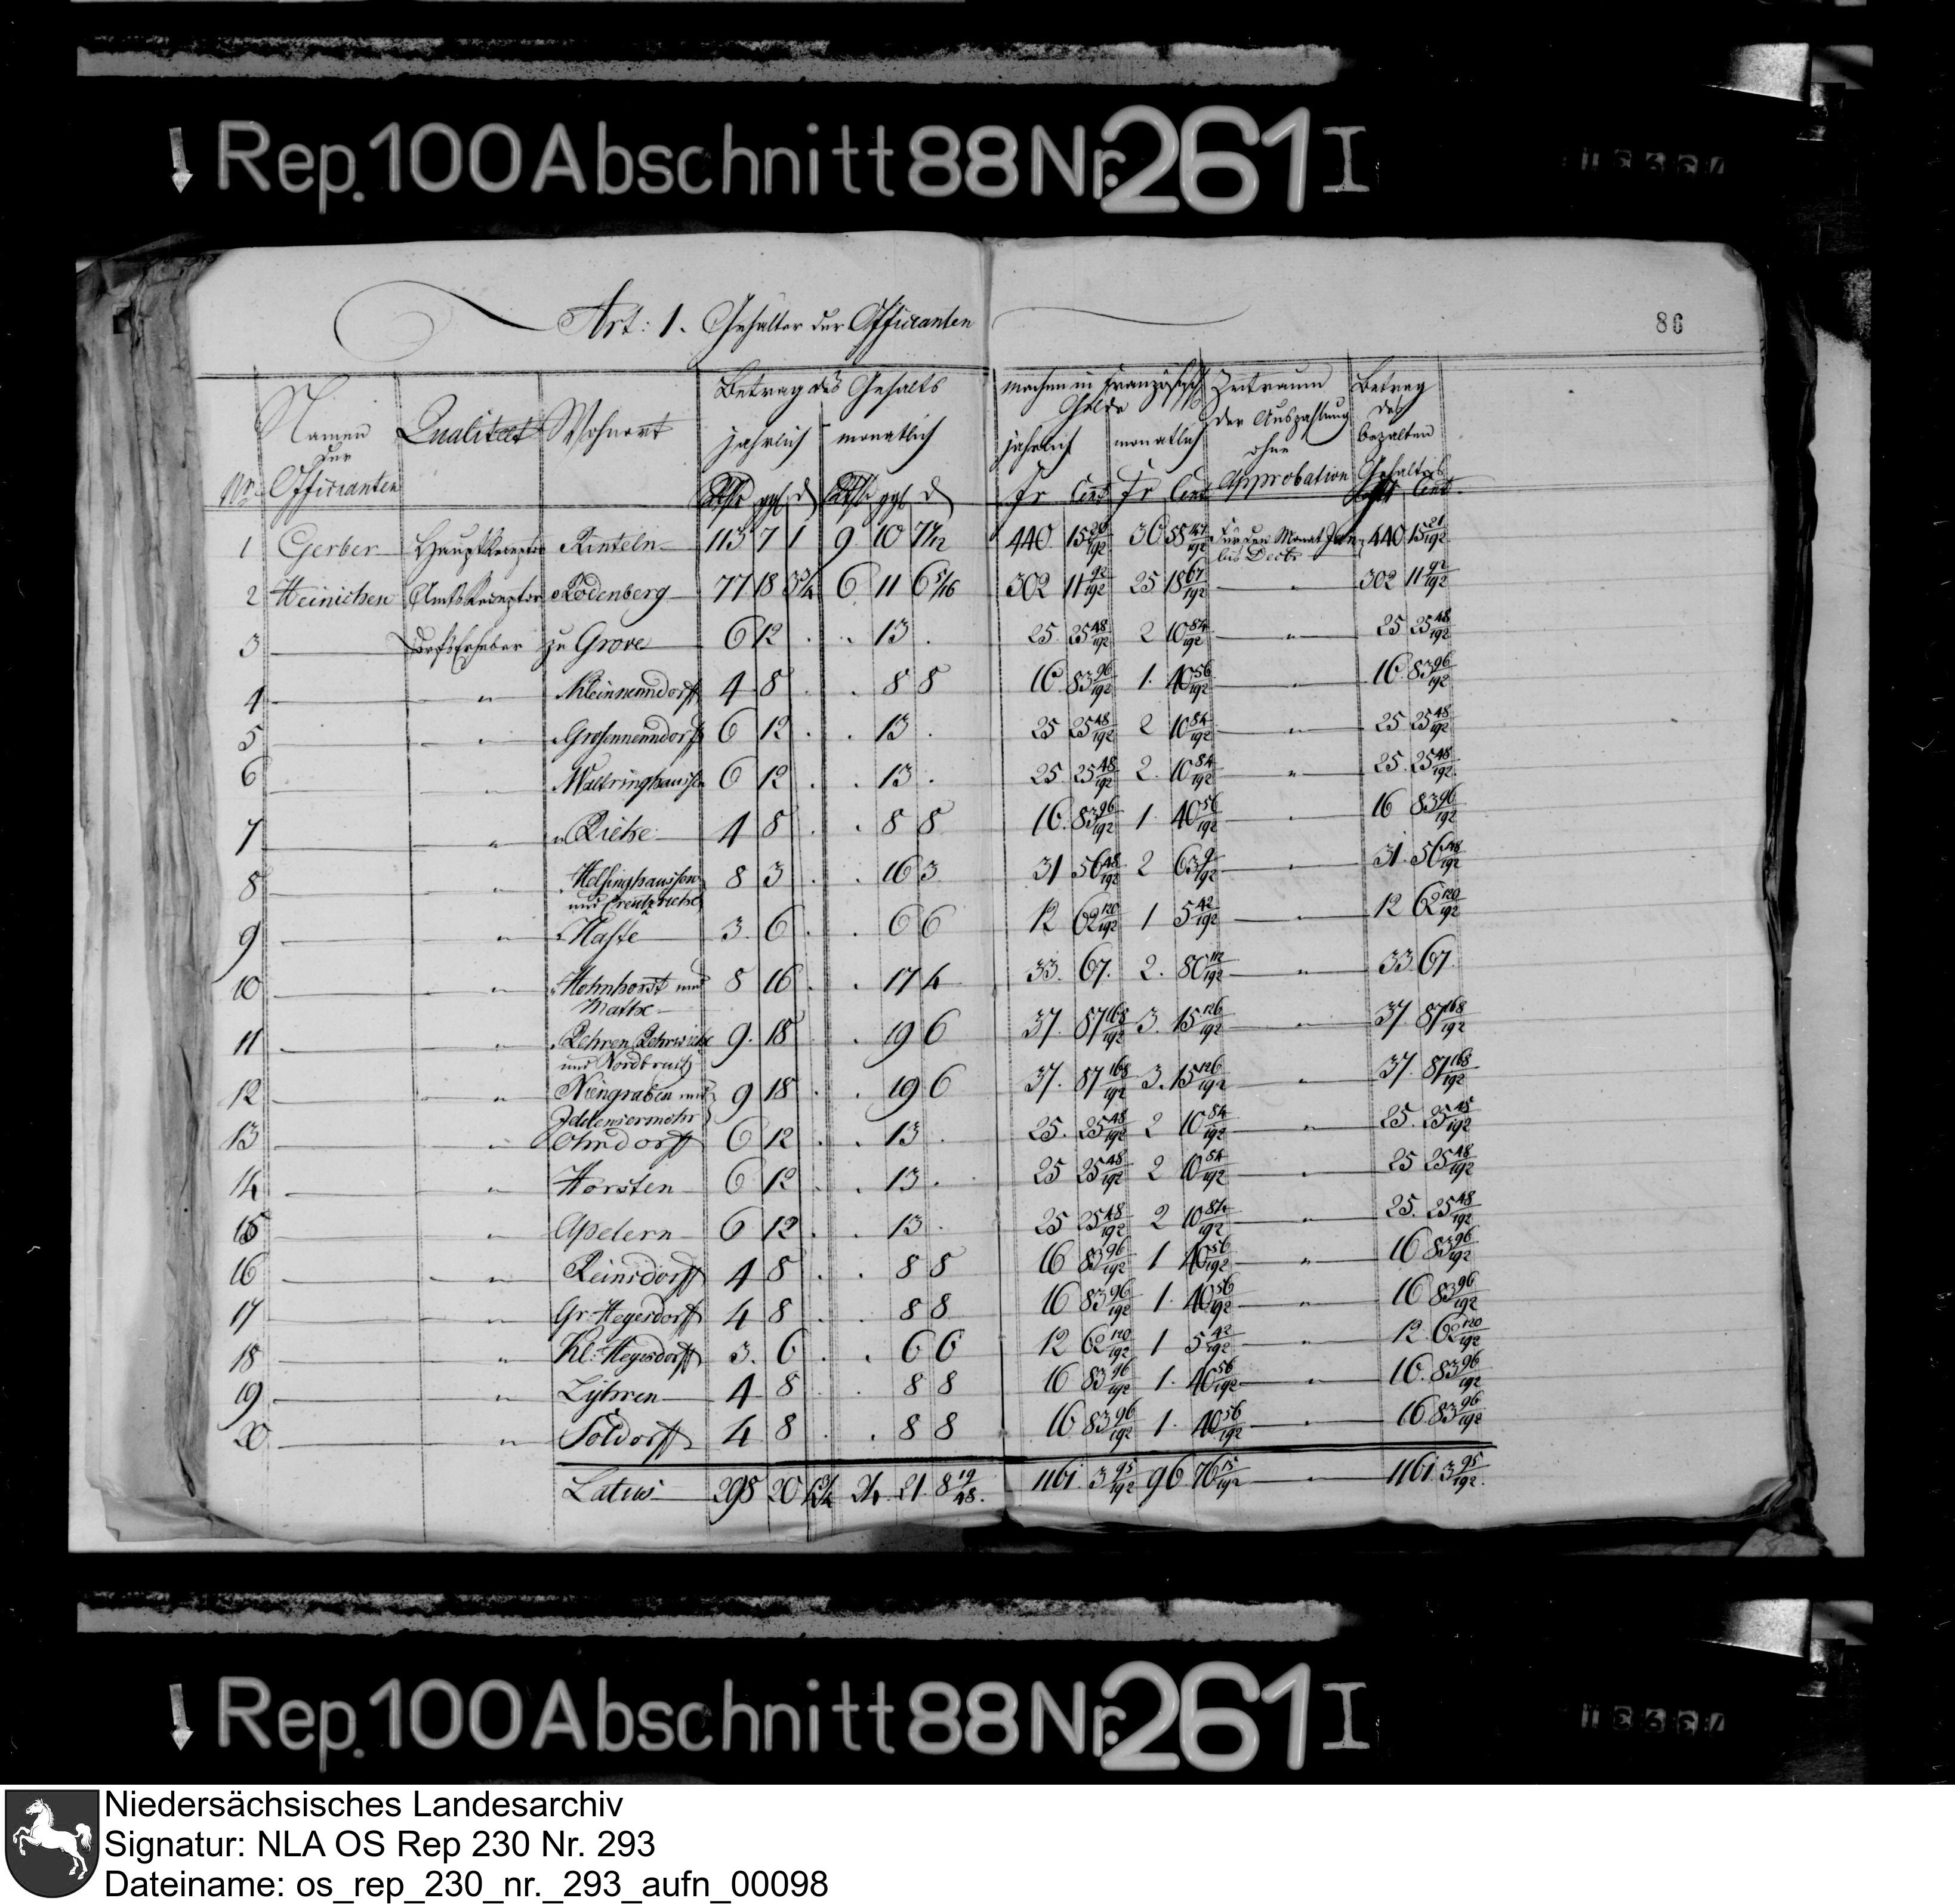 Rep. 100 Abschnitt 88 Nr. 261 I
Art: 1. Gehalter der Officianten
86
Nr. Namen der Officianten Qualitaet Wohnort Betrag des Gehalts machen in Französisch Gelde Zeitraum der Auszahlung ohne Approbation Betrag des bezalten Gehaltes
jahrlich monatlich jahrlich monatlich
Rthr ggl d Rthr ggl d Fr Cent Fr Cent Cent.
1 Gerber Haupt Receptor Rinteln 113 7 1 9 10 7 1/12 440 15 20/192 36 55 Für den Monat Jan bis Decbr 440 15 21/192
2 Heinichen Amts Receptor Rodenberg 77 18 3 3/4 6 11 6 5/16 302 11 92/192 25 18 67/192 " 302 11 92/192
3 Dorfs Erheber zu Grove 6 12 . . 13 . 25 25 48/192 2 10 84/192 " 25 25 48/192
4 " Kleinnenndorff 4 8 . . 8 8 16 83 96/192 1. 40 56/192 " 16 83 96/192
5 " Grosennenndorff 6 12 . . 13 . 25 25 48/192 2 10 84/192 " 25 25 48/192
6 " Waltringhaussen 6 12 . . 13 . 25 25 48/192 2. 10 84/192 " 25 25 48/192
7 " " Riehe 4 8 . . 8 8 16. 83 96/192 1 40 56/192 " 16 83 96/192
8 " Helsinghaussen und Creutzriehe 8 3 . . 16 3 31 56 48/192 2 63 9/192 " 31. 56 48/192
9 " Haste 3. 6 . . 6 6 12 62 120/192 1 5 42/192 " 12 62 120/192
10 " Hohnhorst und Mathe 8 16 . . 17 4 33. 67. 2. 80 112/192 " 33 67.
11 " Rehren, Rehrwiehe und Nordbruch 9. 18 . 19 6 37. 87 168/192 3. 15 126/192 " 37. 87 168/192
12 " Niengraben und Idensermohr 9 18 . . 19 6 37. 87 168/192 3. 15 126/192 " 37. 87 168/192
13 " Ohndorff 6 12 . . 13 . 25. 25 48/192 2 10 84/192 " 25. 25 48/192
14 " Horsten 6 12 . . 13 . 25 25 48/192 2 10 84/192 " 25 25 48/192
15 " Apelern 6 12 . . 13 . 25 25 48/192 2 10 84/192 " 25. 25 48/192
16 " Reinsdorff 4 8 . . 8 8 16 83 96/192 1 40 56/192 " 16 83 96/192
17 " Gr: Hegesdorff 4 8 . . 8 8 16 83 96/192 1. 40 56/192 " 16 83 96/192
18 " Kl: Hegesdorff 3. 6 . . 6 6 12 62 120/192 1 5 42/192 " 12. 62 120/192
19 " Lyhren 4 8 . 8 8 16 83 96/192 1. 40 56/192 " 16. 83 96/192
20 " Soldorff 4 8 . . 8 8 16 83 96/192 1. 40 56/192 " 16. 83 96/192
Latus 298 20 24. 21. 8 19/48. 1161. 3 95/192 96 76 15/192 " 1161. 3 95/192.
Rep. 100 Abschnitt 88 Nr. 261 I
Niedersächsisches Landesarchiv
Signatur: NLA OS Rep 230 Nr. 293
Dateiname: os_rep_230_nr._293_aufn_00098